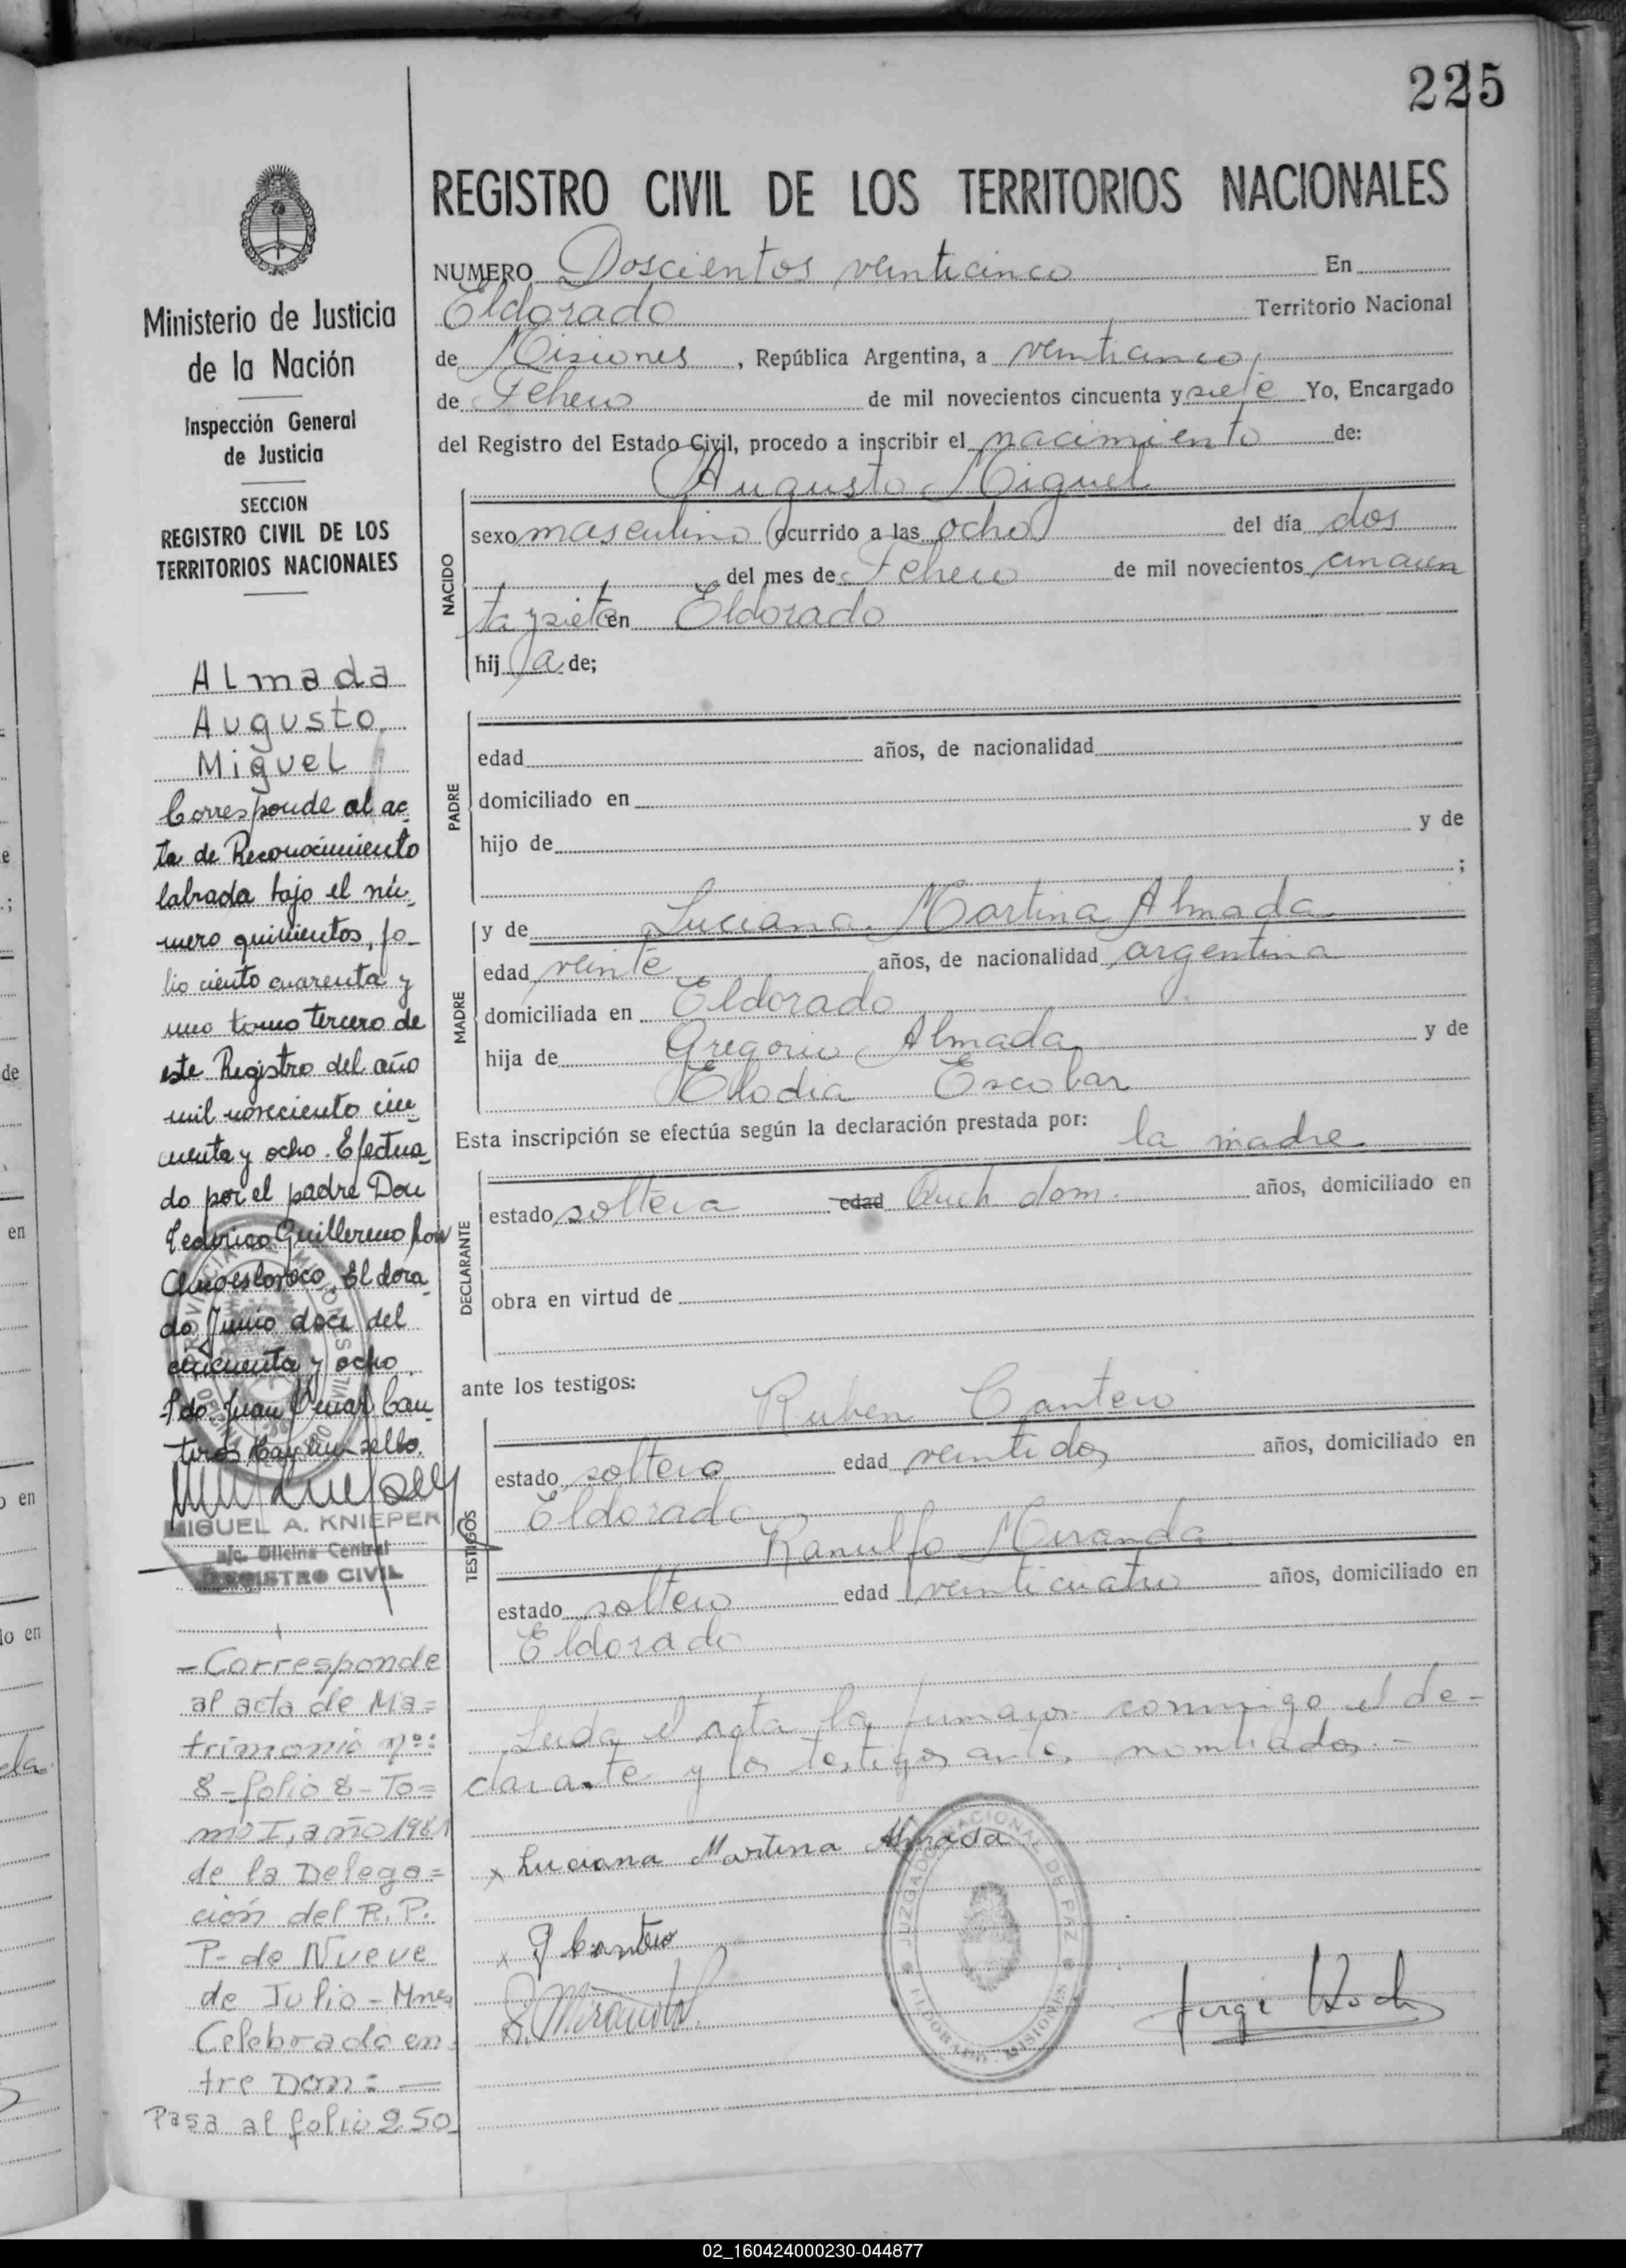 225
REGISTRO CIVIL DE LOS TERRITORIOS NACIONALES
NUMERO Doscientos veinticinco En
Eldorado Territorio Nacional
de Misiones, República Argentina, a veinticinco
de Febrero de mil novecientos cincuenta y siete Yo, Encargado
del Registro del Estado Civil, procedo a inscribir el nacimiento de:
Augusto Miguel
NACIDO
sexo masculino ocurrido a las ocho del día dos
del mes de Febrero de mil novecientos cincuen
ta y siete en Eldorado
hij a de;
PADRE
edad años, de nacionalidad
domiciliado en
hijo de y de
;
MADRE
y de Luciana Martina Almada
edad veinte años, de nacionalidad argentina
domiciliada en Eldorado
hija de Gregorio Almada y de
Elodia Escobar
Esta inscripción se efectúa según la declaración prestada por: la madre
DECLARANTE
estado soltera edad dom. años, domiciliado en
obra en virtud de
ante los testigos:
TESTIGOS
Ruben Cantero
estado soltero edad veintidos años, domiciliado en
Eldorado
Ranulfo Miranda
estado soltero edad veinticuatro años, domiciliado en
Eldorado
Leida el acta la firmaron conmigo el de-
clarante y los testigos antes nombrados.-
x Luciana Martina Almada
x Cantero
R. Miranda
Jorge
JUZGADO NACIONAL DE PAZ
ELDORADO - MISIONES
Ministerio de Justicia
de la Nación
Inspección General
de Justicia
SECCION
REGISTRO CIVIL DE LOS
TERRITORIOS NACIONALES
Almada
Augusto
Miguel
Corresponde al ac-
ta de Reconocimiento
labrada bajo el nú-
mero quinientos, fo-
lio ciento cuarenta y
uno tomo tercero de
este Registro del año
mil novecientos cin-
cuenta y ocho. Efectua-
do por el padre Don
Federico Guillermo
Eldora-
do Junio doce del
cincuenta y ocho
Fdo. Juan Can-
teros sello.
MIGUEL A. KNIEPER
a/c. Oficina Central
REGISTRO CIVIL
- Corresponde
al acta de Ma=
trimonio nº:
8 - folio 8 - To=
mo I, año 1981
de la Delega=
ción del R. P.
P- de Nueve
de Julio - Mnes
Celebrado en=
tre Don: —
Pasa al folio 250
02_160424000230-044877